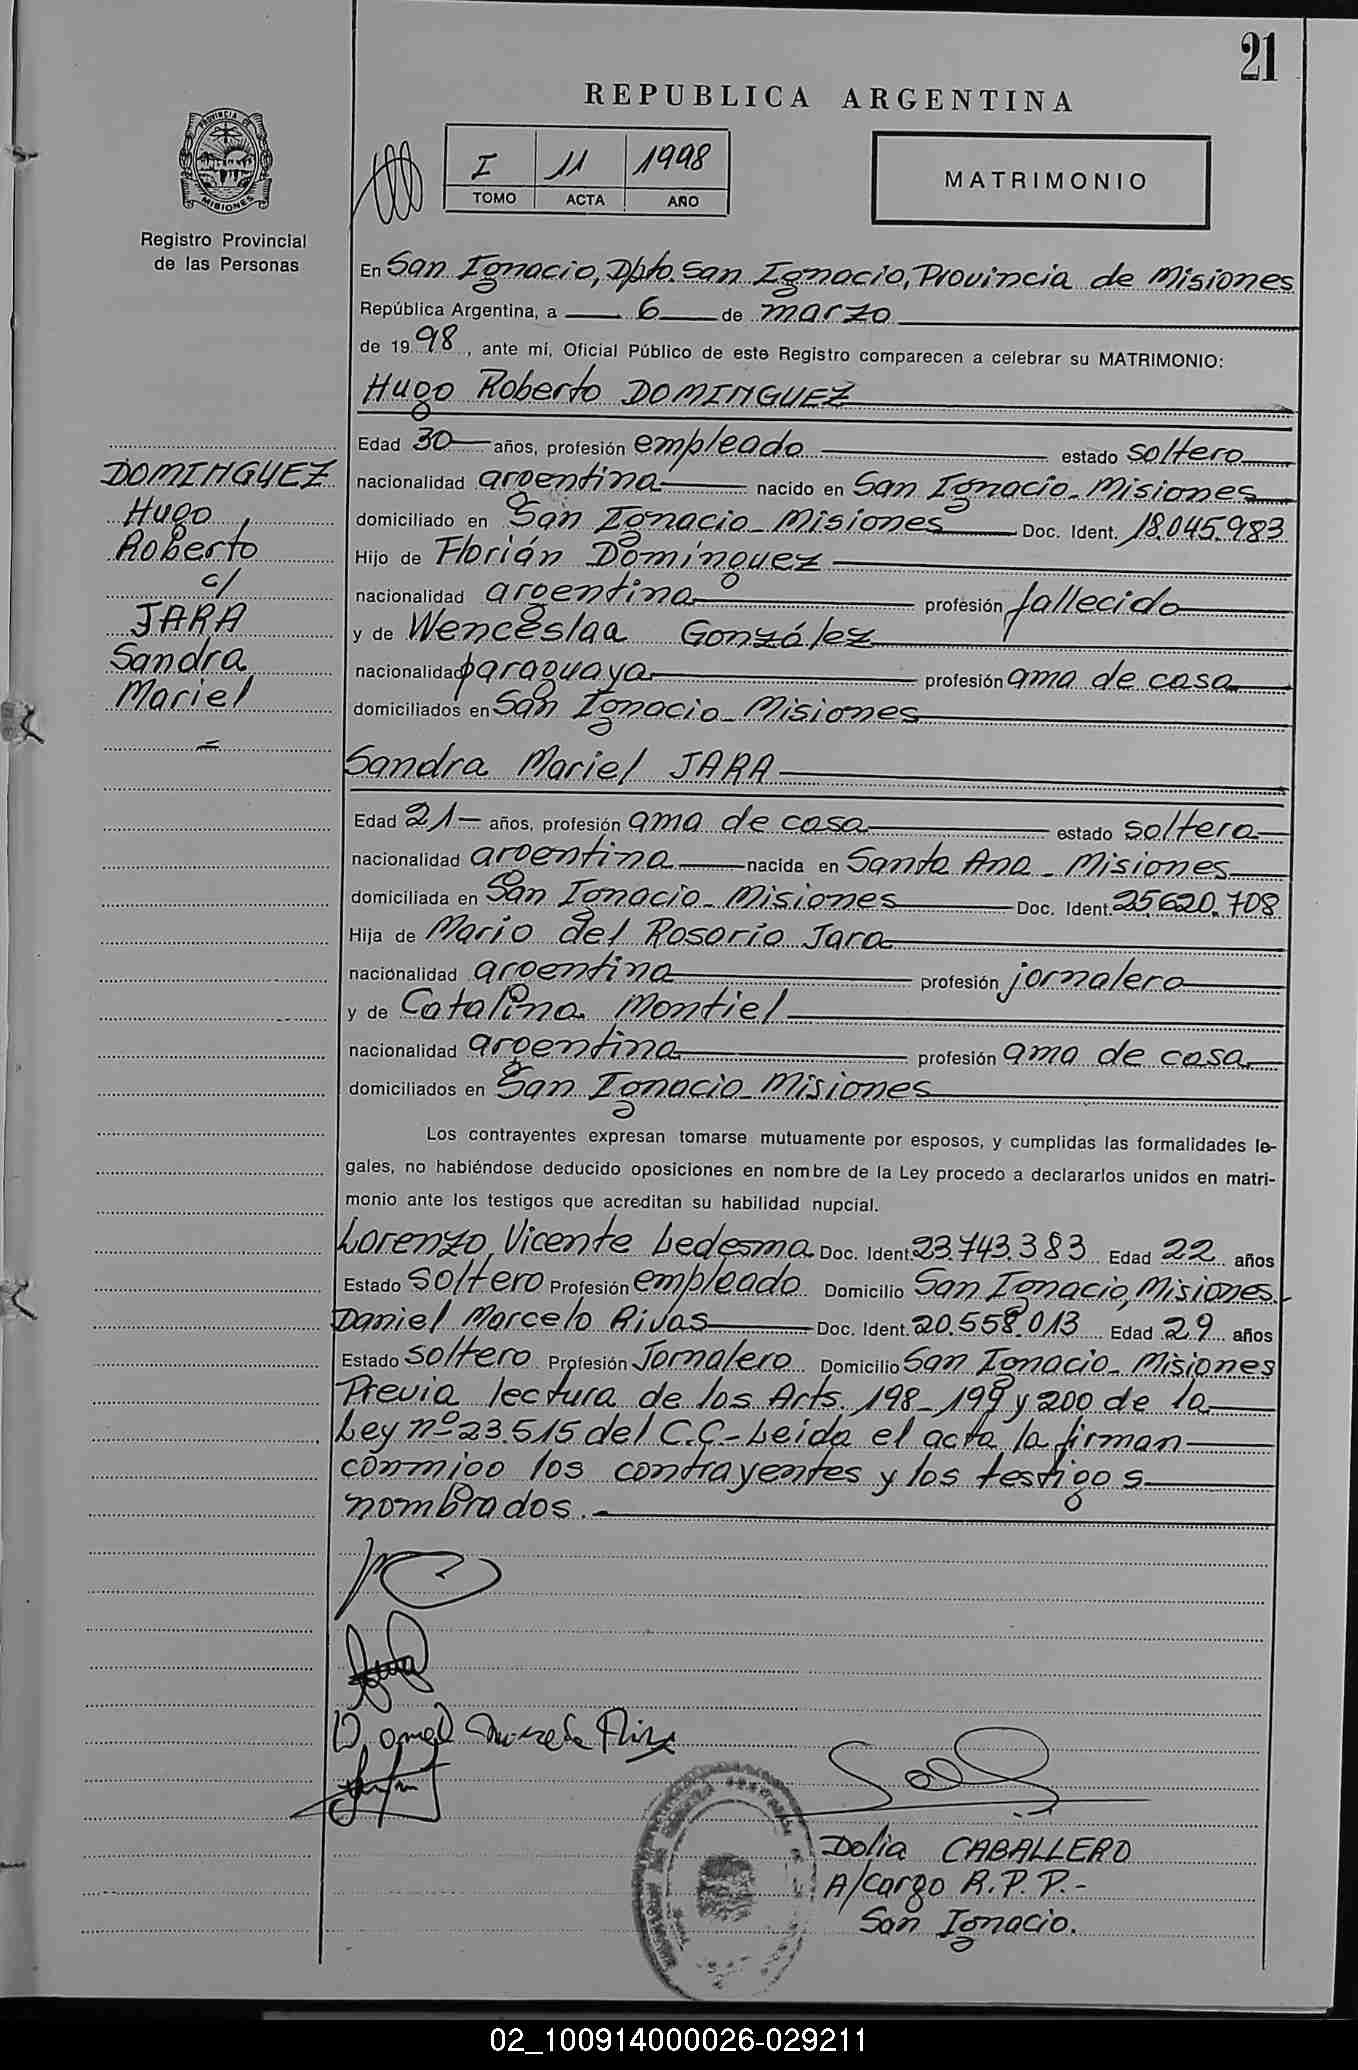 21
REPUBLICA ARGENTINA
PROVINCIA DE
MISIONES
I 11 1998
TOMO ACTA AÑO
MATRIMONIO
Registro Provincial
de las Personas
En San Ignacio, Dpto. San Ignacio, Provincia de Misiones
República Argentina, a 6 de marzo
de 1998, ante mí, Oficial Público de este Registro comparecen a celebrar su MATRIMONIO:
Hugo Roberto DOMINGUEZ
Edad 30 años, profesión empleado estado soltero
nacionalidad argentina nacido en San Ignacio - Misiones
domiciliado en San Ignacio - Misiones Doc. Ident. 18.045.983
Hijo de Florián Domínguez
nacionalidad argentina profesión fallecido
y de Wenceslaa González
nacionalidad paraguaya profesión ama de casa
domiciliados en San Ignacio - Misiones
DOMINGUEZ
Hugo
Roberto
c/
JARA
Sandra
Mariel
=
Sandra Mariel JARA
Edad 21 - años, profesión ama de casa estado soltera
nacionalidad argentina nacida en Santa Ana - Misiones
domiciliada en San Ignacio - Misiones Doc. Ident. 25.620.708
Hija de Mario del Rosario Jara
nacionalidad argentina profesión jornalero
y de Catalina Montiel
nacionalidad argentina profesión ama de casa
domiciliados en San Ignacio - Misiones
Los contrayentes expresan tomarse mutuamente por esposos, y cumplidas las formalidades le-
gales, no habiéndose deducido oposiciones en nombre de la Ley procedo a declararlos unidos en matri-
monio ante los testigos que acreditan su habilidad nupcial.
Lorenzo Vicente Ledesma Doc. Ident. 23.743.383 Edad 22 años
Estado soltero Profesión empleado Domicilio San Ignacio, Misiones.
Daniel Marcelo Rivas Doc. Ident. 20.558.013 Edad 29 años
Estado soltero Profesión Jornalero Domicilio San Ignacio - Misiones
Previa lectura de los Arts. 198 - 199 y 200 de la
Ley nº 23.515 del C.C. - Leida el acta la firman
conmigo los contrayentes y los testigos
nombrados. -
Dolia CABALLERO
A/cargo R.P.P. -
San Ignacio.
02_100914000026-029211